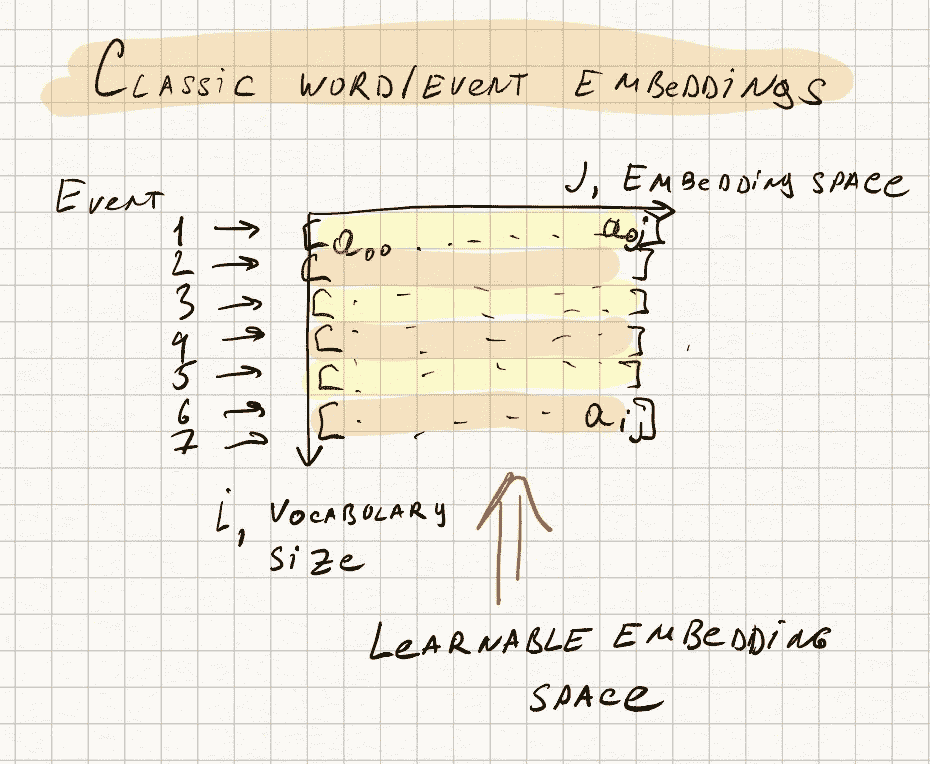 Classic word/event embeddings
J, Embedding space
Event
1 → [a₀₀ . . - - - a₀ⱼ]
2 → [ ]
3 → [ . - - - - ]
4 → [ . - - - ]
5 → [ . - - - ]
6 → [ . - - - aᵢⱼ]
7 →
i, vocabulary
size
Learnable embedding
space